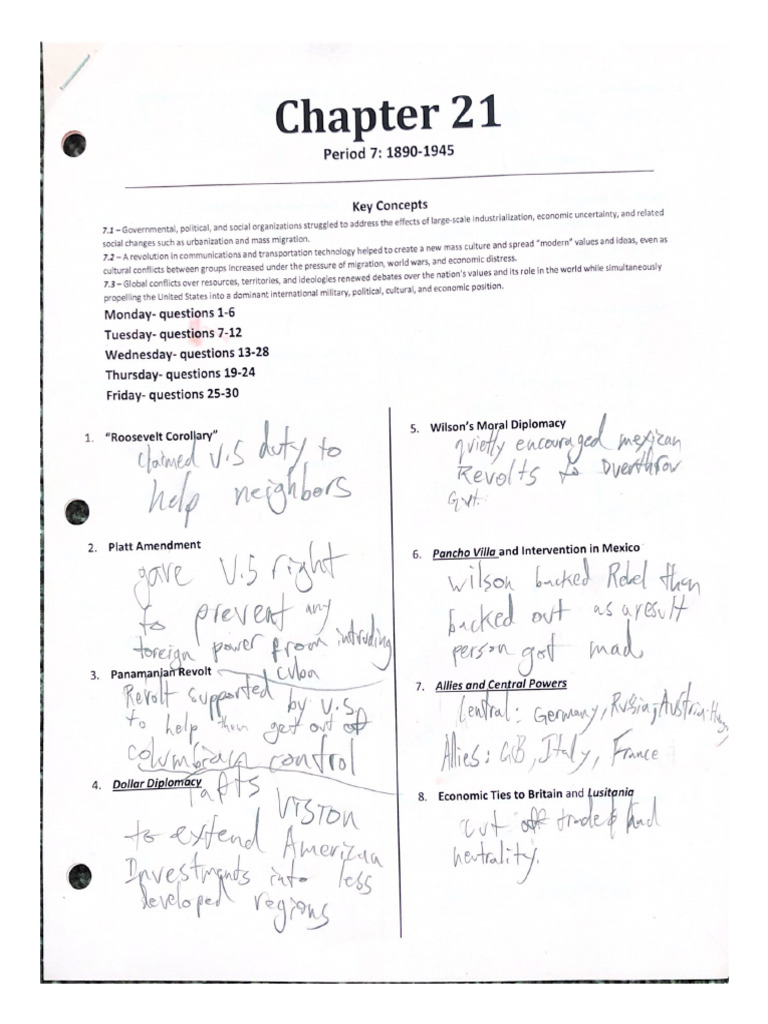 Chapter 21
Period 7: 1890-1945
Key Concepts
7.1 – Governmental, political, and social organizations struggled to address the effects of large-scale industrialization, economic uncertainty, and related
social changes such as urbanization and mass migration.
7.2 – A revolution in communications and transportation technology helped to create a new mass culture and spread “modern” values and ideas, even as
cultural conflicts between groups increased under the pressure of migration, world wars, and economic distress.
7.3 – Global conflicts over resources, territories, and ideologies renewed debates over the nation's values and its role in the world while simultaneously
propelling the United States into a dominant international military, political, cultural, and economic position.
Monday- questions 1-6
Tuesday- questions 7-12
Wednesday- questions 13-28
Thursday- questions 19-24
Friday- questions 25-30
1. “Roosevelt Corollary”
claimed U.S duty to
help neighbors
2. Platt Amendment
gave U.S right
to prevent any
foreign power from intruding
Cuba
3. Panamanian Revolt
Revolt supported by U.S
to help them get out of
columbian control
4. Dollar Diplomacy
Tafts vision
to extend American
Investments into less
developed regions
5. Wilson's Moral Diplomacy
quietly encouraged mexican
Revolts to overthrow
Gvt.
6. Pancho Villa and Intervention in Mexico
wilson backed Rebel then
backed out as a result
person got mad
7. Allies and Central Powers
Central: Germany, Russia, Austria-Hung
Allies: GB, Italy, France
8. Economic Ties to Britain and Lusitania
cut off trade &
neutrality.